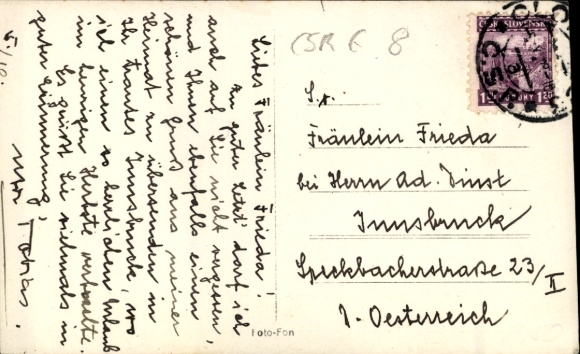 Liebes Fräulein Frieda!
Zu guter Letzt darf ich
auch auf Sie nicht vergessen,
und Ihnen ebenfalls einen
schönen Gruß aus meiner
Heimat zu übersenden in
Ihr trautes Innsbruck, wo
ich einen so herrlichen Urlaub
im heurigen Herbste verbrachte.
Es grüßt Sie vielmals in
guter Erinnerung,
5/10.
ČSR 6 8
ČESKOSLOVENSKO
1.20 KORUNY 1.20
S. r.
Fräulein Frieda
bei Herrn Ad. Dinst
Innsbruck
Speckbacherstraße 23/II
D.-Oesterreich
Foto-Fon